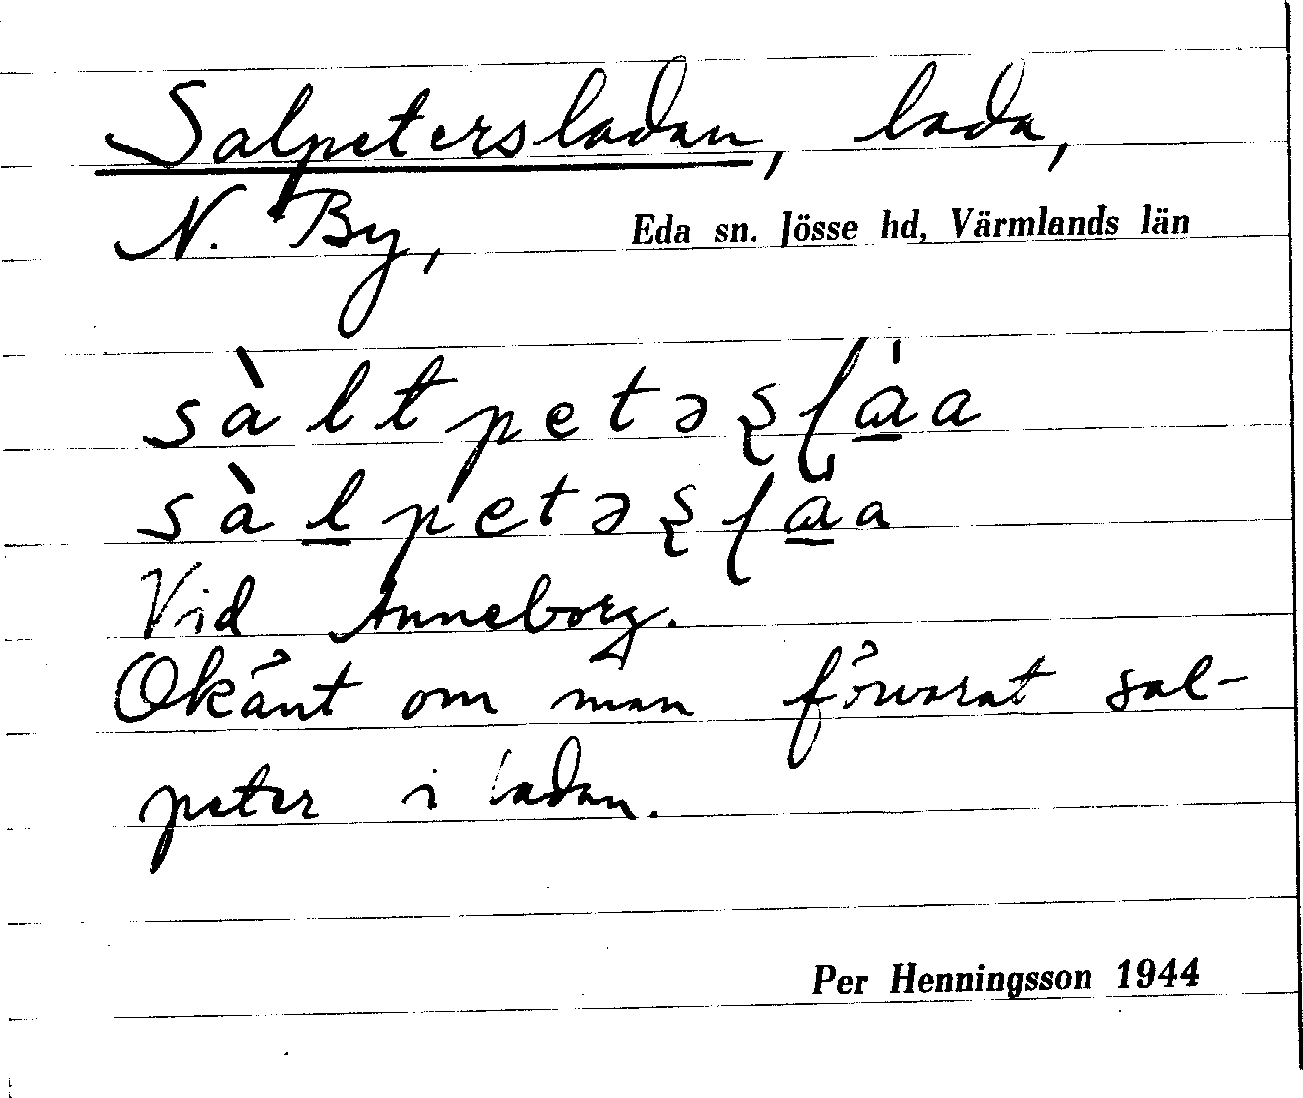 Salpetersladan, lada,
N. By, Eda sn. Jösse hd, Värmlands län
sàltpetəʂɭa̲̍a
sàl̲petəʂɭa̲̍a
Vid Anneborg.
Okänt om man förvarat sal-
peter i ladan.
Per Henningsson 1944